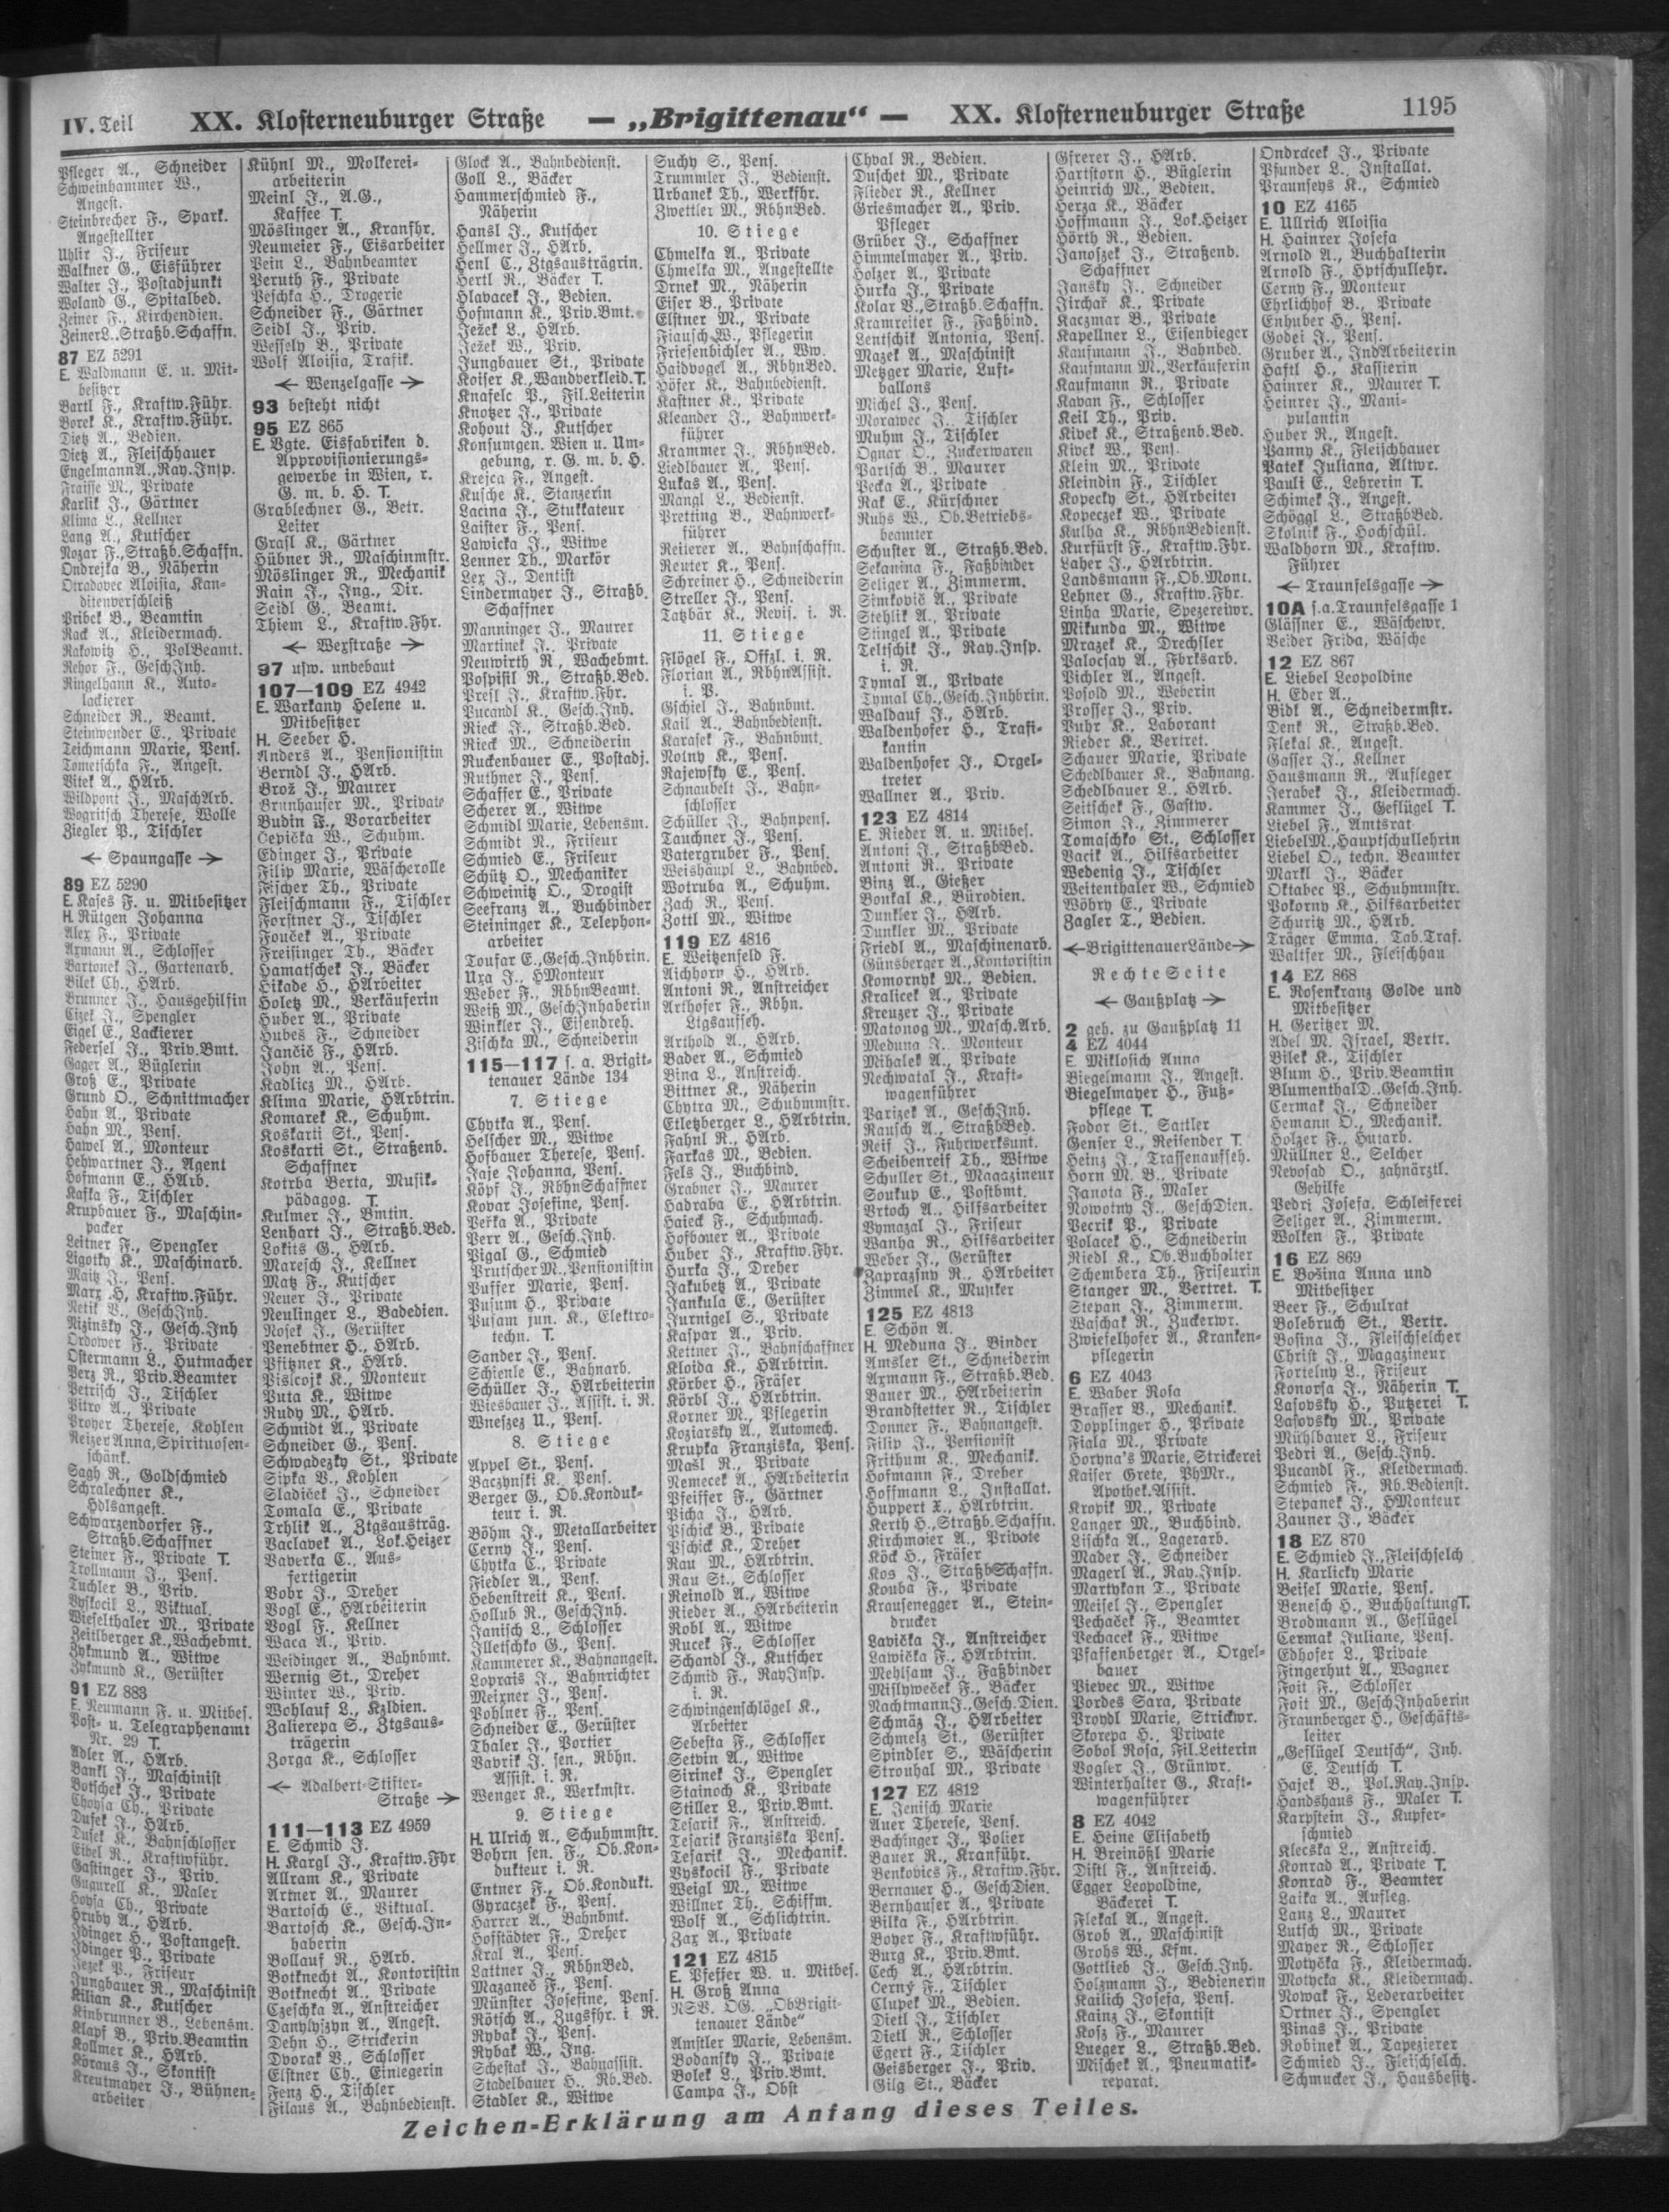 IV. Teil XX. Klosterneuburger Straße — „Brigittenau“ — XX. Klosterneuburger Straße 1195
Pfleger A., Schneider
Schweinhammer W.,
Angest.
Steinbrecher F., Spark.
Angestellter
Uhlir J., Friseur
Walkner G., Eisführer
Walter J., Postadjunkt
Woland G., Spitalbed.
Zeiner F., Kirchendien.
Zeiner L., Straßb.Schaffn.
87 EZ 5291
E. Waldmann E. u. Mit-
besitzer
Bartl F., Kraftw.Führ.
Borek K., Kraftw.Führ.
Dietz A., Bedien.
Dietz A., Fleischhauer
Engelmann A., Ray.Insp.
Fraisse M., Private
Karlik J., Gärtner
Klima L., Kellner
Lang A., Kutscher
Nozar F., Straßb.Schaffn.
Ondrejka B., Näherin
Otradovec Aloisia, Kan-
ditenverschleiß
Pribek B., Beamtin
Rack A., Kleidermach.
Rakowitz H., PolBeamt.
Rehor F., GeschInh.
Ringelhann K., Auto-
lackierer
Schneider R., Beamt.
Steinwender E., Private
Teichmann Marie, Pens.
Tometschka F., Angest.
Vitek A., HArb.
Wildpont J., MaschArb.
Wogritsch Therese, Wolle
Ziegler P., Tischler
← Spaungasse →
89 EZ 5290
E. Kases F. u. Mitbesitzer
H. Rütgen Johanna
Alex F., Private
Axmann A., Schlosser
Bartonek J., Gartenarb.
Bilek Ch., HArb.
Brunner J., Hausgehilfin
Cizek J., Spengler
Eigel E., Lackierer
Federsel J., Priv.Bmt.
Gager A., Büglerin
Groß E., Private
Grund O., Schnittmacher
Hahn A., Private
Hahn M., Pens.
Hawel A., Monteur
Hehwartner J., Agent
Hofmann E., HArb.
Kafka F., Tischler
Krupbauer F., Maschin-
packer
Leitner F., Spengler
Ligotky K., Maschinarb.
Maitz J., Pens.
Marx H., Kraftw.Führ.
Netik V., GeschInh.
Nizinsky J., Gesch.Inh
Ordower F., Private
Ostermann L., Hutmacher
Perz R., Priv.Beamter
Petrisch J., Tischler
Pitro A., Private
Proyer Therese, Kohlen
Reizer Anna, Spirituosen-
schänk.
Sagh R., Goldschmied
Schralechner K.,
Hdlsangest.
Schwarzendorfer F.,
Straßb.Schaffner
Steiner F., Private T.
Trollmann J., Pens.
Tuchler B., Priv.
Vyskocil L., Viktual.
Wieselthaler M., Private
Zeitlberger K., Wachebmt.
Zykmund A., Witwe
Zykmund K., Gerüster
91 EZ 883
E. Neumann F. u. Mitbes.
Post- u. Telegraphenamt
Nr. 29 T.
Adler A., HArb.
Bankl J., Maschinist
Botschek J., Private
Choysa Ch., Private
Dusek J., HArb.
Dusek K., Bahnschlosser
Eibel R., Kraftwführ.
Gastinger J., Priv.
Gugurell K., Maler
Hoysa Ch., Private
Hruby A., HArb.
Idinger H., Postangest.
Idinger P., Private
Jezek P., Friseur
Jungbauer R., Maschinist
Kilian K., Kutscher
Kinbrunner B., Lebensm.
Klapf B., Priv.Beamtin
Kollmer K., HArb.
Köraus J., Skontist
Kreutmayer J., Bühnen-
arbeiter
Kühnl M., Molkerei-
arbeiterin
Meinl J., A.G.,
Kaffee T.
Möslinger A., Kranfhr.
Neumeier F., Eisarbeiter
Pein L., Bahnbeamter
Peruth F., Private
Peschka H., Drogerie
Schneider F., Gärtner
Seidl J., Priv.
Wessely B., Private
Wolf Aloisia, Trafik.
← Wenzelgasse →
93 besteht nicht
95 EZ 865
E. Vgte. Eisfabriken d.
Approvisionierungs-
gewerbe in Wien, r.
G. m. b. H. T.
Grablechner G., Betr.
Leiter
Grasl K., Gärtner
Hübner R., Maschinmstr.
Möslinger R., Mechanik
Rain J., Ing., Dir.
Seidl G., Beamt.
Thiem L., Kraftw.Fhr.
← Wexstraße →
97 usw. unbebaut
107—109 EZ 4942
E. Warkany Helene u.
Mitbesitzer
H. Seeber H.
Anders A., Pensionistin
Berndl J., HArb.
Brož J., Maurer
Brunhauser M., Private
Budin F., Vorarbeiter
Cepička W., Schuhm.
Edinger J., Private
Filip Marie, Wäscherolle
Fischer Th., Private
Fleischmann F., Tischler
Forstner J., Tischler
Fouček A., Private
Freisinger Th., Bäcker
Hamatschek J., Bäcker
Hikade H., HArbeiter
Holetz M., Verkäuferin
Huber A., Private
Hubes F., Schneider
Jančič F., HArb.
John A., Pens.
Kadlicz M., HArb.
Klima Marie, HArbtrin.
Komarek K., Schuhm.
Koskarti St., Pens.
Koskarti St., Straßenb.
Schaffner
Kotrba Berta, Musik-
pädagog. T.
Kulmer J., Bmtin.
Lenhart J., Straßb.Bed.
Lokits G., HArb.
Maresch J., Kellner
Matz F., Kutscher
Neuer J., Private
Neulinger L., Badedien.
Nosek J., Gerüster
Penebtner H., HArb.
Pfitzner K., HArb.
Piskojk K., Monteur
Puta K., Witwe
Rudy M., HArb.
Schmidt A., Private
Schneider G., Pens.
Schwadezky St., Private
Sipka V., Kohlen
Sladiček J., Schneider
Tomala E., Private
Trhlik A., Ztgsausträg.
Vaclavek A., Lok.Heizer
Vaverka C., Aus-
fertigerin
Vobr J., Dreher
Vogl E., HArbeiterin
Vogl F., Kellner
Waca A., Priv.
Weidinger A., Bahnbmt.
Wernig St., Dreher
Winter W., Priv.
Wohlauf L., Kzldien.
Zalierepa S., Ztgsaus-
trägerin
Zorga K., Schlosser
← Adalbert-Stifter-
Straße →
111—113 EZ 4959
E. Schmid J.
H. Kargl J., Kraftw.Fhr
Allram K., Private
Artner A., Maurer
Bartosch E., Viktual.
Bartosch K., Gesch.In-
haberin
Bollauf R., HArb.
Botknecht A., Kontoristin
Botknecht A., Private
Czeschka A., Anstreicher
Danylyszyn A., Angest.
Dehn H., Strickerin
Dvorak B., Schlosser
Elstner Ch., Einlegerin
Fenz H., Tischler
Filaus A., Bahnbedienst.
Glock A., Bahnbedienst.
Goll L., Bäcker
Hammerschmied F.,
Näherin
Hansl J., Kutscher
Hellmer J., HArb.
Henl C., Ztgsausträgrin.
Hertl R., Bäcker T.
Hlavacek J., Bedien.
Hofmann K., Priv.Bmt.
Ježek L., HArb.
Ježek W., Priv.
Jungbauer St., Private
Koiser K., Wandverkleid.T.
Knafelc P., Fil.Leiterin
Knotzer J., Private
Kohout J., Kutscher
Konsumgen. Wien u. Um-
gebung, r. G. m. b. H.
Krejca F., Angest.
Kusche K., Stanzerin
Lacina J., Stukkateur
Laister F., Pens.
Lawicka J., Witwe
Lenner Th., Markör
Lex J., Dentist
Lindermayer J., Straßb.
Schaffner
Manninger J., Maurer
Martinek J., Private
Neuwirth R., Wachebmt.
Pospisil R., Straßb.Bed.
Presl J., Kraftw.Fhr.
Pucandl K., Gesch.Inh.
Rieck J., Straßb.Bed.
Rieck M., Schneiderin
Ruckenbauer E., Postadj.
Ruthner J., Pens.
Schaffer E., Private
Scherer A., Witwe
Schmidl Marie, Lebensm.
Schmidt N., Friseur
Schmied E., Friseur
Schütz O., Mechaniker
Schweinitz O., Drogist
Seefranz A., Buchbinder
Steininger K., Telephon-
arbeiter
Toufar E., Gesch.Inhbrin.
Uxa J., HMonteur
Weber F., RbhnBeamt.
Weiß M., GeschInhaberin
Winkler J., Eisendreh.
Zischka M., Schneiderin
115—117 s. a. Brigit-
tenauer Lände 134
7. Stiege
Chytka A., Pens.
Helscher M., Witwe
Hofbauer Therese, Pens.
Jaje Johanna, Pens.
Köpf J., RbhnSchaffner
Kovar Josefine, Pens.
Peřka A., Private
Perr A., Gesch.Inh.
Pigal G., Schmied
Prutscher M., Pensionistin
Puffer Marie, Pens.
Pusum H., Private
Pusam jun. K., Elektro-
techn. T.
Sander J., Pens.
Schienle E., Bahnarb.
Schüller J., HArbeiterin
Wiesbauer J., Assist. i. R.
Wnejzez U., Pens.
8. Stiege
Appel St., Pens.
Baczynski K., Pens.
Berger G., Ob.Konduk-
teur i. R.
Böhm J., Metallarbeiter
Cerny J., Pens.
Chytka C., Private
Fiedler A., Pens.
Hebenstreit K., Pens.
Hollub R., GeschInh.
Janisch L., Schlosser
Illetschko G., Pens.
Kammerer K., Bahnangest.
Loprais J., Bahnrichter
Meixner J., Pens.
Pohlner F., Pens.
Schneider E., Gerüster
Thaler J., Portier
Vavrik J. sen., Rbhn.
Assist. i. R.
Wenger K., Werkmstr.
9. Stiege
H. Ulrich A., Schuhmmstr.
Bohrn sen. F., Ob.Kon-
dukteur i. R.
Entner F., Ob.Kondukt.
Gyraczek F., Pens.
Harrer A., Bahnbmt.
Hofstädter F., Dreher
Kral A., Pens.
Lattner J., RbhnBed.
Mazaneč F., Pens.
Münster Josefine, Pens.
Rötsch A., Zugsfhr. i. R.
Rybak J., Pens.
Rybak W., Ing.
Schestak J., Bahnassist.
Stadelbauer H., Rb.Bed.
Stadler K., Witwe
Suchy S., Pens.
Trummler J., Bedienst.
Urbanek Th., Werkfhr.
Zwettler M., RbhnBed.
10. Stiege
Chmelka A., Private
Chmelka M., Angestellte
Drnek M., Näherin
Eiser B., Private
Elstner M., Private
Fiausch W., Pflegerin
Friesenbichler A., Ww.
Haidvogel A., RbhnBed.
Höfer K., Bahnbedienst.
Kastner K., Private
Kleander J., Bahnwerk-
führer
Krammer J., RbhnBed.
Liedlbauer A., Pens.
Lukas A., Pens.
Mangl L., Bedienst.
Pretting B., Bahnwerk-
führer
Reiterer A., Bahnschaffn.
Reuter K., Pens.
Schreiner H., Schneiderin
Streller J., Pens.
Tatzbär K., Revis. i. R.
11. Stiege
Flögel F., Offzl. i. R.
Florian A., RbhnAssist.
i. P.
Gschiel J., Bahnbmt.
Kail A., Bahnbedienst.
Karasek F., Bahnbmt.
Nolny K., Pens.
Rajewsky E., Pens.
Schnaubelt J., Bahn-
schlosser
Schüller J., Bahnpens.
Tauchner J., Pens.
Vatergruber F., Pens.
Weishäupl L., Bahnbed.
Wotruba A., Schuhm.
Zach R., Pens.
Zottl M., Witwe
119 EZ 4816
E. Weitzenfeld F.
Aichhorn H., HArb.
Antoni R., Anstreicher
Arthofer F., Rbhn.
Ltgsaufseh.
Arthold A., HArb.
Bader A., Schmied
Bina L., Anstreich.
Bittner K., Näherin
Chytra M., Schuhmmstr.
Etletzberger L., HArbtrin.
Fahnl R., HArb.
Farkas M., Bedien.
Fels J., Buchbind.
Grabner J., Maurer
Hadraba E., HArbtrin.
Haieck F., Schuhmach.
Hofbauer A., Private
Huber J., Kraftw.Fhr.
Hurka J., Dreher
Jakubetz A., Private
Jankula E., Gerüster
Jurnigel S., Private
Kaspar A., Priv.
Kettner J., Bahnschaffner
Kloida K., HArbtrin.
Körber H., Fräser
Körbl J., HArbtrin.
Korner M., Pflegerin
Koziarsky A., Automech.
Krupka Franziska, Pens.
Mašl R., Private
Nemecek A., HArbeiterin
Pfeiffer F., Gärtner
Picha J., HArb.
Pschick B., Private
Pschick K., Dreher
Rau M., HArbtrin.
Rau St., Schlosser
Reinold A., Witwe
Rieder A., HArbeiterin
Robl A., Witwe
Rucek F., Schlosser
Schandl J., Kutscher
Schmid F., RayInsp.
i. R.
Schwingenschlögel K.,
Arbeiter
Sebesta F., Schlosser
Setvin A., Witwe
Sirinek J., Spengler
Stainoch K., Private
Stiller L., Priv.Bmt.
Tesarik F., Anstreich.
Tesarik Franziska Pens.
Tesarik J., Mechanik.
Vyskocil F., Private
Weigl M., Witwe
Willner Th., Schiffm.
Wolf A., Schlichtrin.
Zax A., Private
121 EZ 4815
E. Pfeffer W. u. Mitbes.
H. Groß Anna
NSV. OG. „ObBrigit-
tenauer Lände“
Amstler Marie, Lebensm.
Bodansky J., Private
Bolek L., Priv.Bmt.
Campa J., Obst
Chval R., Bedien.
Duschet M., Private
Flieder R., Kellner
Griesmacher A., Priv.
Pfleger
Grüber J., Schaffner
Himmelmayer A., Priv.
Holzer A., Private
Hurka J., Private
Kolar V., Straßb.Schaffn.
Kramreiter F., Faßbind.
Lentschik Antonia, Pens.
Mazek A., Maschinist
Metzger Marie, Luft-
ballons
Michel J., Pens.
Morawec J., Tischler
Muhm J., Tischler
Ognar O., Zuckerwaren
Partsch B., Maurer
Pecka A., Private
Rak E., Kürschner
Ruhs W., Ob.Betriebs-
beamter
Schuster A., Straßb.Bed.
Sekanina F., Faßbinder
Seliger A., Zimmerm.
Simkovič A., Private
Stehlik A., Private
Stingel A., Private
Teltschik J., Ray.Insp.
i. R.
Tymal A., Private
Tymal Ch., Gesch.Inhbrin.
Waldauf J., HArb.
Waldenhofer H., Trafi-
kantin
Waldenhofer J., Orgel-
treter
Wallner A., Priv.
123 EZ 4814
E. Rieder A. u. Mitbes.
Antoni J., StraßbBed.
Antoni R., Private
Binz A., Gießer
Boukal K., Bürodien.
Dunkler J., HArb.
Dunkler M., Private
Friedl A., Maschinenarb.
Günsberger A., Kontoristin
Komornyk M., Bedien.
Kralicek A., Private
Kreuzer J., Private
Matonog M., Masch.Arb.
Meduna J., Monteur
Mihalek A., Private
Nechwatal J., Kraft-
wagenführer
Parizek A., GeschInh.
Rausch A., StraßbBed.
Reif J., Fuhrwerksunt.
Scheibenreif Th., Witwe
Schuller St., Magazineur
Soukup E., Postbmt.
Vrtoch A., Hilfsarbeiter
Vymazal J., Friseur
Wanha R., Hilfsarbeiter
Weber J., Gerüster
Zaprazsny R., HArbeiter
Zimmel K., Musiker
125 EZ 4813
E. Schön A.
H. Meduna J., Binder
Amsler St., Schneiderin
Axmann F., Straßb.Bed.
Bauer M., HArbeiterin
Brandstetter R., Tischler
Donner F., Bahnangest.
Filip J., Pensionist
Frithum K., Mechanik.
Hofmann F., Dreher
Hoffmann L., Installat.
Huppert X., HArbtrin.
Kerth H., Straßb.Schaffn.
Kirchmaier A., Private
Köck H., Fräser
Kos J., StraßbSchaffn.
Kouba F., Private
Krausenegger A., Stein-
drucker
Lavička J., Anstreicher
Lawička F., HArbtrin.
Mehlsam J., Faßbinder
Mislyweček F., Bäcker
Nachtmann J., Gesch.Dien.
Schmáz J., HArbeiter
Schmelz St., Gerüster
Spindler S., Wäscherin
Strouhal M., Private
127 EZ 4812
E. Jenisch Marie
Auer Therese, Pens.
Bachinger J., Polier
Bauer R., Kranführ.
Benkovics F., Kraftw.Fhr.
Bernauer H., GeschDien.
Bernhauser A., Private
Bilka F., HArbtrin.
Boyer F., Kraftwführ.
Burg K., Priv.Bmt.
Cech A., HArbtrin.
Cerný F., Tischler
Clupek M., Bedien.
Dietl J., Tischler
Dietl R., Schlosser
Egert F., Tischler
Geisberger J., Priv.
Gilg St., Bäcker
Gfrerer J., HArb.
Hartstorn H., Büglerin
Heinrich M., Bedien.
Herza K., Bäcker
Hoffmann J., Lok.Heizer
Hörth R., Bedien.
Janoszek J., Straßenb.
Schaffner
Jansky J., Schneider
Jirchař K., Private
Kaczmar B., Private
Kapellner L., Eisenbieger
Kaufmann J., Bahnbed.
Kaufmann M., Verkäuferin
Kaufmann R., Private
Kavan F., Schlosser
Keil Th., Priv.
Kivek K., Straßenb.Bed.
Kivek W., Pens.
Klein M., Private
Kleindin F., Tischler
Kopecky St., HArbeiter
Kopeczek W., Private
Kulha K., RbhnBedienst.
Kurfürst F., Kraftw.Fhr.
Laher J., HArbtrin.
Landsmann F., Ob.Mont.
Lehner G., Kraftw.Fhr.
Linha Marie, Spezereiwr.
Mikunda M., Witwe
Mrazek K., Drechsler
Palocsay A., Fbrksarb.
Pichler A., Angest.
Posold M., Weberin
Prosser J., Priv.
Puhr K., Laborant
Rieder K., Vertret.
Schauer Marie, Private
Schedlbauer K., Bahnang.
Schedlbauer L., HArb.
Seitschek F., Gastw.
Simon J., Zimmerer
Tomaschko St., Schlosser
Vacik A., Hilfsarbeiter
Wedenig J., Tischler
Weitenthaler W., Schmied
Wöbry E., Private
Zagler T., Bedien.
← Brigittenauer Lände →
Rechte Seite
← Gaußplatz →
2 geh. zu Gaußplatz 11
4 EZ 4044
E. Miklosich Anna
Biegelmann J., Angest.
Biegelmayer H., Fuß-
pflege T.
Fodor St., Sattler
Genser L., Reisender T.
Heinz J., Trassenaufseh.
Horn M. B., Private
Janota F., Maler
Nowotny J., GeschDien.
Pecrik P., Private
Polacek H., Schneiderin
Riedl K., Ob.Buchhalter
Schembera Th., Friseurin
Stanger M., Vertret. T.
Stepan J., Zimmerm.
Waschak R., Zuckerwr.
Zwiefelhofer A., Kranken-
pflegerin
6 EZ 4043
E. Waber Rosa
Brasser V., Mechanik.
Dopplinger H., Private
Fiala M., Private
Horyna's Marie, Strickerei
Kaiser Grete, PhMr.,
Apothek.Assist.
Kropik M., Private
Langer M., Buchbind.
Lischka A., Lagerarb.
Mader J., Schneider
Magerl A., Ray.Insp.
Martykan T., Private
Meisel J., Spengler
Pechaček F., Beamter
Pechacek F., Witwe
Pfaffenberger A., Orgel-
bauer
Pievec M., Witwe
Pordes Sara, Private
Proydl Marie, Strickwr.
Skorepa H., Private
Sobol Rosa, Fil.Leiterin
Vogler J., Grünwr.
Winterhalter G., Kraft-
wagenführer
8 EZ 4042
E. Heine Elisabeth
H. Breinößl Marie
Distl F., Anstreich.
Egger Leopoldine,
Bäckerei T.
Flekal A., Angest.
Grob A., Maschinist
Grohs W., Kfm.
Gottlieb J., Gesch.Inh.
Holzmann J., Bedienerin
Kailich Josefa, Pens.
Kainz J., Skontist
Kosz F., Maurer
Lueger L., Straßb.Bed.
Mischek A., Pneumatik-
reparat.
Ondracek J., Private
Pfunder L., Installat.
Praunseys K., Schmied
10 EZ 4165
E. Ullrich Aloisia
H. Hainrer Josefa
Arnold A., Buchhalterin
Arnold F., Hptschullehr.
Cerny F., Monteur
Ehrlichhof B., Private
Enhuber H., Pens.
Godei J., Pens.
Gruber A., IndArbeiterin
Haftl H., Kassierin
Hainrer K., Maurer T.
Heinrer J., Mani-
pulantin
Huber R., Angest.
Panny K., Fleischhauer
Patek Juliana, Altwr.
Pauli E., Lehrerin T.
Schimek J., Angest.
Schöggl L., StraßbBed.
Skolnik F., Hochschül.
Waldhorn M., Kraftw.
Führer
← Traunfelsgasse →
10A s.a. Traunfelsgasse 1
Gläffner E., Wäschewr.
Veider Frida, Wäsche
12 EZ 867
E. Liebel Leopoldine
H. Eder A.,
Bidl A., Schneidermstr.
Denk R., Straßb.Bed.
Flekal K., Angest.
Gasser J., Kellner
Hausmann R., Aufleger
Jerabek J., Kleidermach.
Kammer J., Geflügel T.
Liebel F., Amtsrat
Liebel M., Hauptschullehrin
Liebel O., techn. Beamter
Markl J., Bäcker
Oktabec P., Schuhmmstr.
Pokorny K., Hilfsarbeiter
Schuritz M., HArb.
Träger Emma, Tab.Traf.
Waltser M., Fleischhau
14 EZ 868
E. Rosenkranz Golde und
Mitbesitzer
H. Geritzer M.
Adel M. Israel, Vertr.
Bilek K., Tischler
Blum H., Priv.Beamtin
Blumenthal D., Gesch.Inh.
Cermak J., Schneider
Hemann O., Mechanik.
Holzer F., Hutarb.
Müllner L., Selcher
Nevosad O., zahnärztl.
Gehilfe
Pedri Josefa, Schleiferei
Seliger A., Zimmerm.
Wolken F., Private
16 EZ 869
E. Bošina Anna und
Mitbesitzer
Beer F., Schulrat
Bolebruch St., Vertr.
Bosina J., Fleischselcher
Christ J., Magazineur
Fortelny L., Friseur
Konorsa J., Näherin T.
Lasovsky H., Putzerei T.
Lasovsky M., Private
Mühlbauer L., Friseur
Pedri A., Gesch.Inh.
Pucandl F., Kleidermach.
Schmied F., Rb.Bedienst.
Stepanek J., HMonteur
Zauner J., Bäcker
18 EZ 870
E. Schmied J., Fleischselch
H. Karlicky Marie
Beisel Marie, Pens.
Benesch H., Buchhaltung T.
Brodmann A., Geflügel
Cermak Juliane, Pens.
Edhofer L., Private
Fingerhut A., Wagner
Foit F., Schlosser
Foit M., GeschInhaberin
Fraunberger H., Geschäfts-
leiter
„Geflügel Deutsch“, Inh.
E. Deutsch T.
Hajek B., Pol.Ray.Insp.
Handshaus F., Maler T.
Karpstein J., Kupfer-
schmied
Klecska L., Anstreich.
Konrad A., Private T.
Konrad F., Beamter
Laika A., Aufleg.
Lanz L., Maurer
Lutsch M., Private
Mayer R., Schlosser
Motyčka F., Kleidermach.
Motycka K., Kleidermach.
Nowak F., Lederarbeiter
Ortner J., Spengler
Pinas J., Private
Robinek A., Tapezierer
Schmied J., Fleischselch.
Schmucker J., Hausbesitz.
Zeichen-Erklärung am Anfang dieses Teiles.